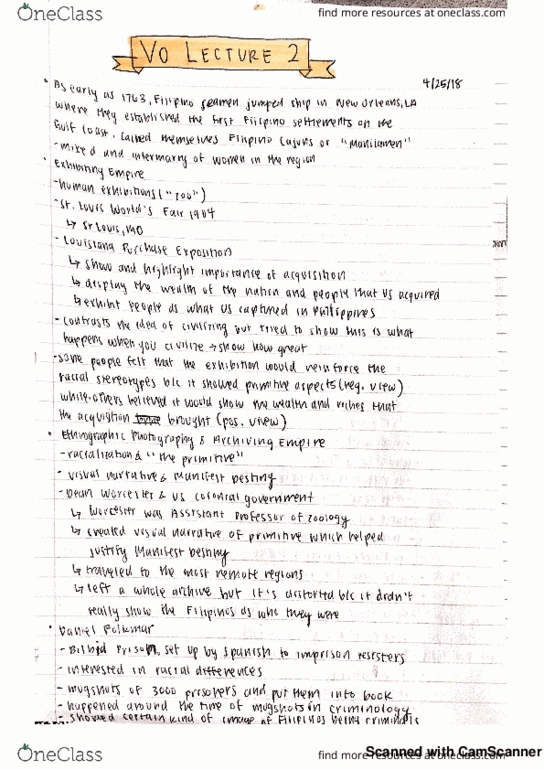 OneClass
find more resources at oneclass.com
OneClass
find more resources at oneclass.com
VO LECTURE 2
4/25/18
• As early as 1763, Filipino seamen jumped ship in New Orleans, LA
where they established the first Filipino settlements on the
Gulf Coast. Called themselves Filipino Cajuns or "Manilamen"
- mixed and intermarry of women in the region
• Exhibiting Empire
- human exhibitions ("zoo")
- St. Louis World's Fair 1904
↳ St Louis, MO
- Louisiana Purchase Exposition
↳ show and highlight importance of acquisition
↳ display the wealth of the nation and people that US acquired
↳ exhibit people as what US captured in Philippines
- contrasts the idea of civilizing but tried to show this is what
happens when you civilize → show how great
- some people felt that the exhibition would reinforce the
racial stereotypes b/c it showed primitive aspects (neg. view)
while others believed it would show the wealth and riches that
the acquisition brought (pos. view)
• Ethnographic Photography & Archiving Empire
- racialization & "the primitive"
- visual narrative & Manifest Destiny
- Dean Worcester & US colonial government
↳ Worcester was Assistant Professor of Zoology
↳ created visual narrative of primitive which helped
justify Manifest Destiny
↳ traveled to the most remote regions
↳ left a whole archive but it's distorted b/c it didn't
really show the Filipinos as who they were
• Daniel Folkmar
- Bilbid Prison, set up by Spanish to imprison resisters
- interested in racial differences
- mugshots of 3000 prisoners and put them into book
- happened around the time of mugshots in criminology
- showed certain kind of image of Filipinos being criminals
OneClass
find more resources at oneclass.com
Scanned with CamScanner